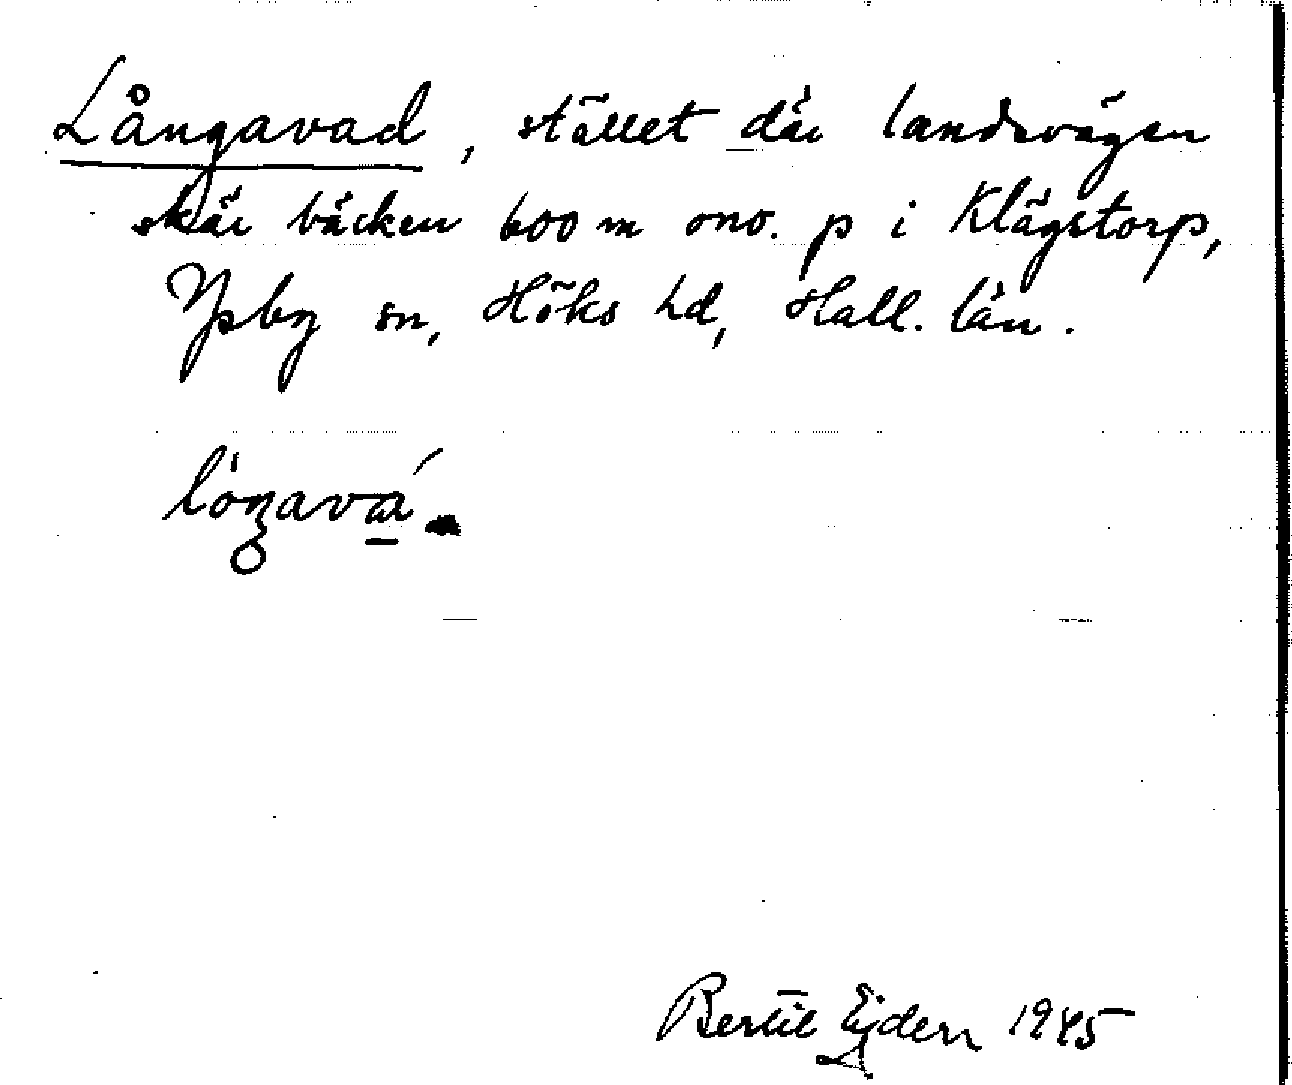 Långavad, stället där landsvägen
skär bäcken 600 m ono. p i Klägstorp,
Ysby sn, Höks hd, Hall. län.
Bertil Ejder 1945